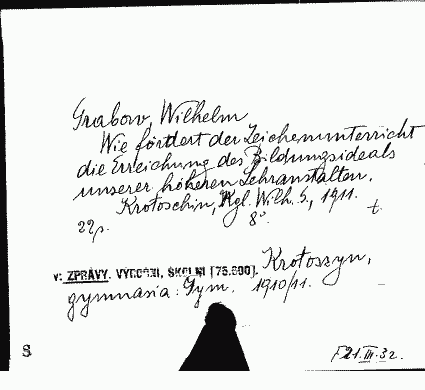 Grabow, Wilhelm
Wie fördert der Zeichenunterricht
die Erreichung des Bildungsideals
unserer höheren Lehranstalten.
Krotoschin, Kgl. Wilh. G., 1911.
22p. 8°. t.
v: ZPRÁVY. VÝROČNÍ, ŠKOLNÍ [75.600]. Krotoszyn,
gymnasia: Gym. 1910/11.
S
21.III.32.